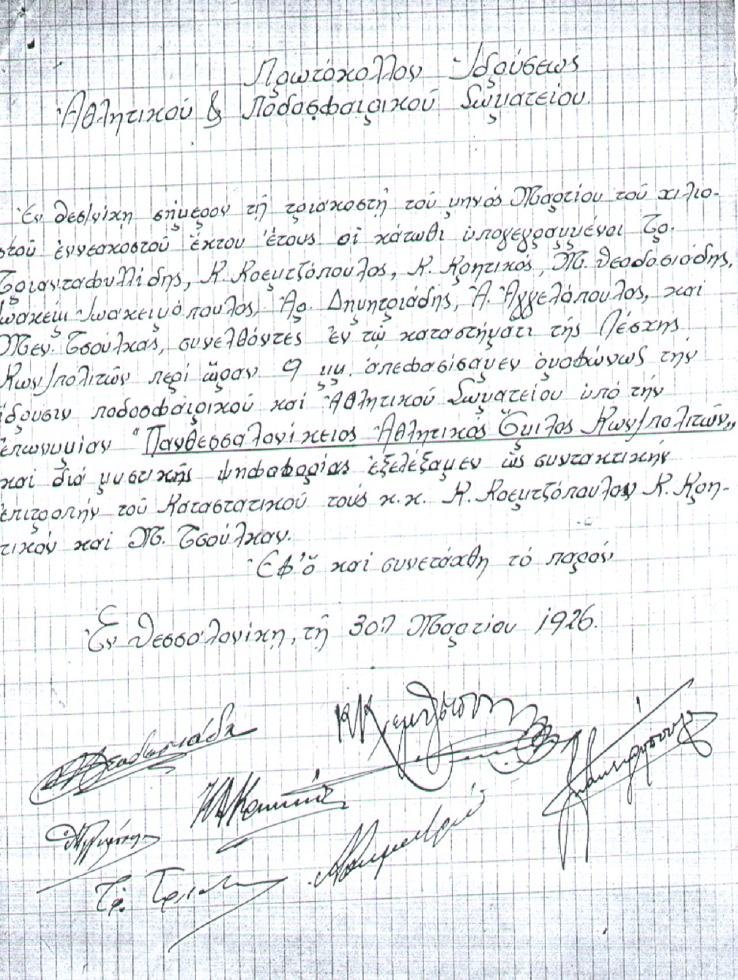 Πρωτόκολλον Ἱδρύσεως
Ἀθλητικοῦ & Ποδοσφαιρικοῦ Σωματείου.
Ἐν Θεσ/νίκῃ σήμερον τῇ τριακοστῇ τοῦ μηνὸς Μαρτίου τοῦ χιλιο-
στοῦ ἐννεακοστοῦ ἕκτου ἔτους οἱ κάτωθι ὑπογεγραμμένοι Τρ.
Τριανταφυλλίδης, Κ. Κοεμτζόπουλος, Κ. Κρητικός, Μ. Θεοδοσιάδης,
Ἰωακεὶμ Ἰωακειμόπουλος, Ἀρ. Δημητριάδης, Ἀ. Ἀγγελόπουλος, καὶ
Μεν. Τσούλκας, συνελθόντες ἐν τῷ καταστήματι τῆς Λέσχης
Κων/πολιτῶν περὶ ὥραν 9 μμ. ἀπεφασίσαμεν ὁμοφώνως τὴν
ἵδρυσιν ποδοσφαιρικοῦ καὶ Ἀθλητικοῦ Σωματείου ὑπὸ τὴν
ἐπωνυμίαν "Πανθεσσαλονίκειος Ἀθλητικὸς Ὅμιλος Κων/πολιτῶν„
καὶ διὰ μυστικῆς ψηφοφορίας ἐξελέξαμεν ὡς συντακτικὴν
ἐπιτροπὴν τοῦ Καταστατικοῦ τοὺς κ.κ. Κ. Κοεμτζόπουλον Κ. Κρη-
τικὸν καὶ Μ. Τσούλκαν.
Ἐφ' ᾧ καὶ συνετάχθη τὸ παρόν
Ἐν Θεσσαλονίκῃ, τῇ 30ῃ Μαρτίου 1926.
Τρ. Τριαν